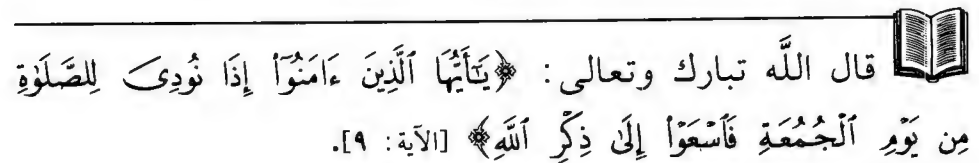 قال اللَّه تبارك وتعالى: ﴿يَـٰٓأَيُّهَا ٱلَّذِينَ ءَامَنُوٓا۟ إِذَا نُودِىَ لِلصَّلَوٰةِ
مِن يَوْمِ ٱلْجُمُعَةِ فَٱسْعَوْا۟ إِلَىٰ ذِكْرِ ٱللَّهِ﴾ [الآية: ٩].